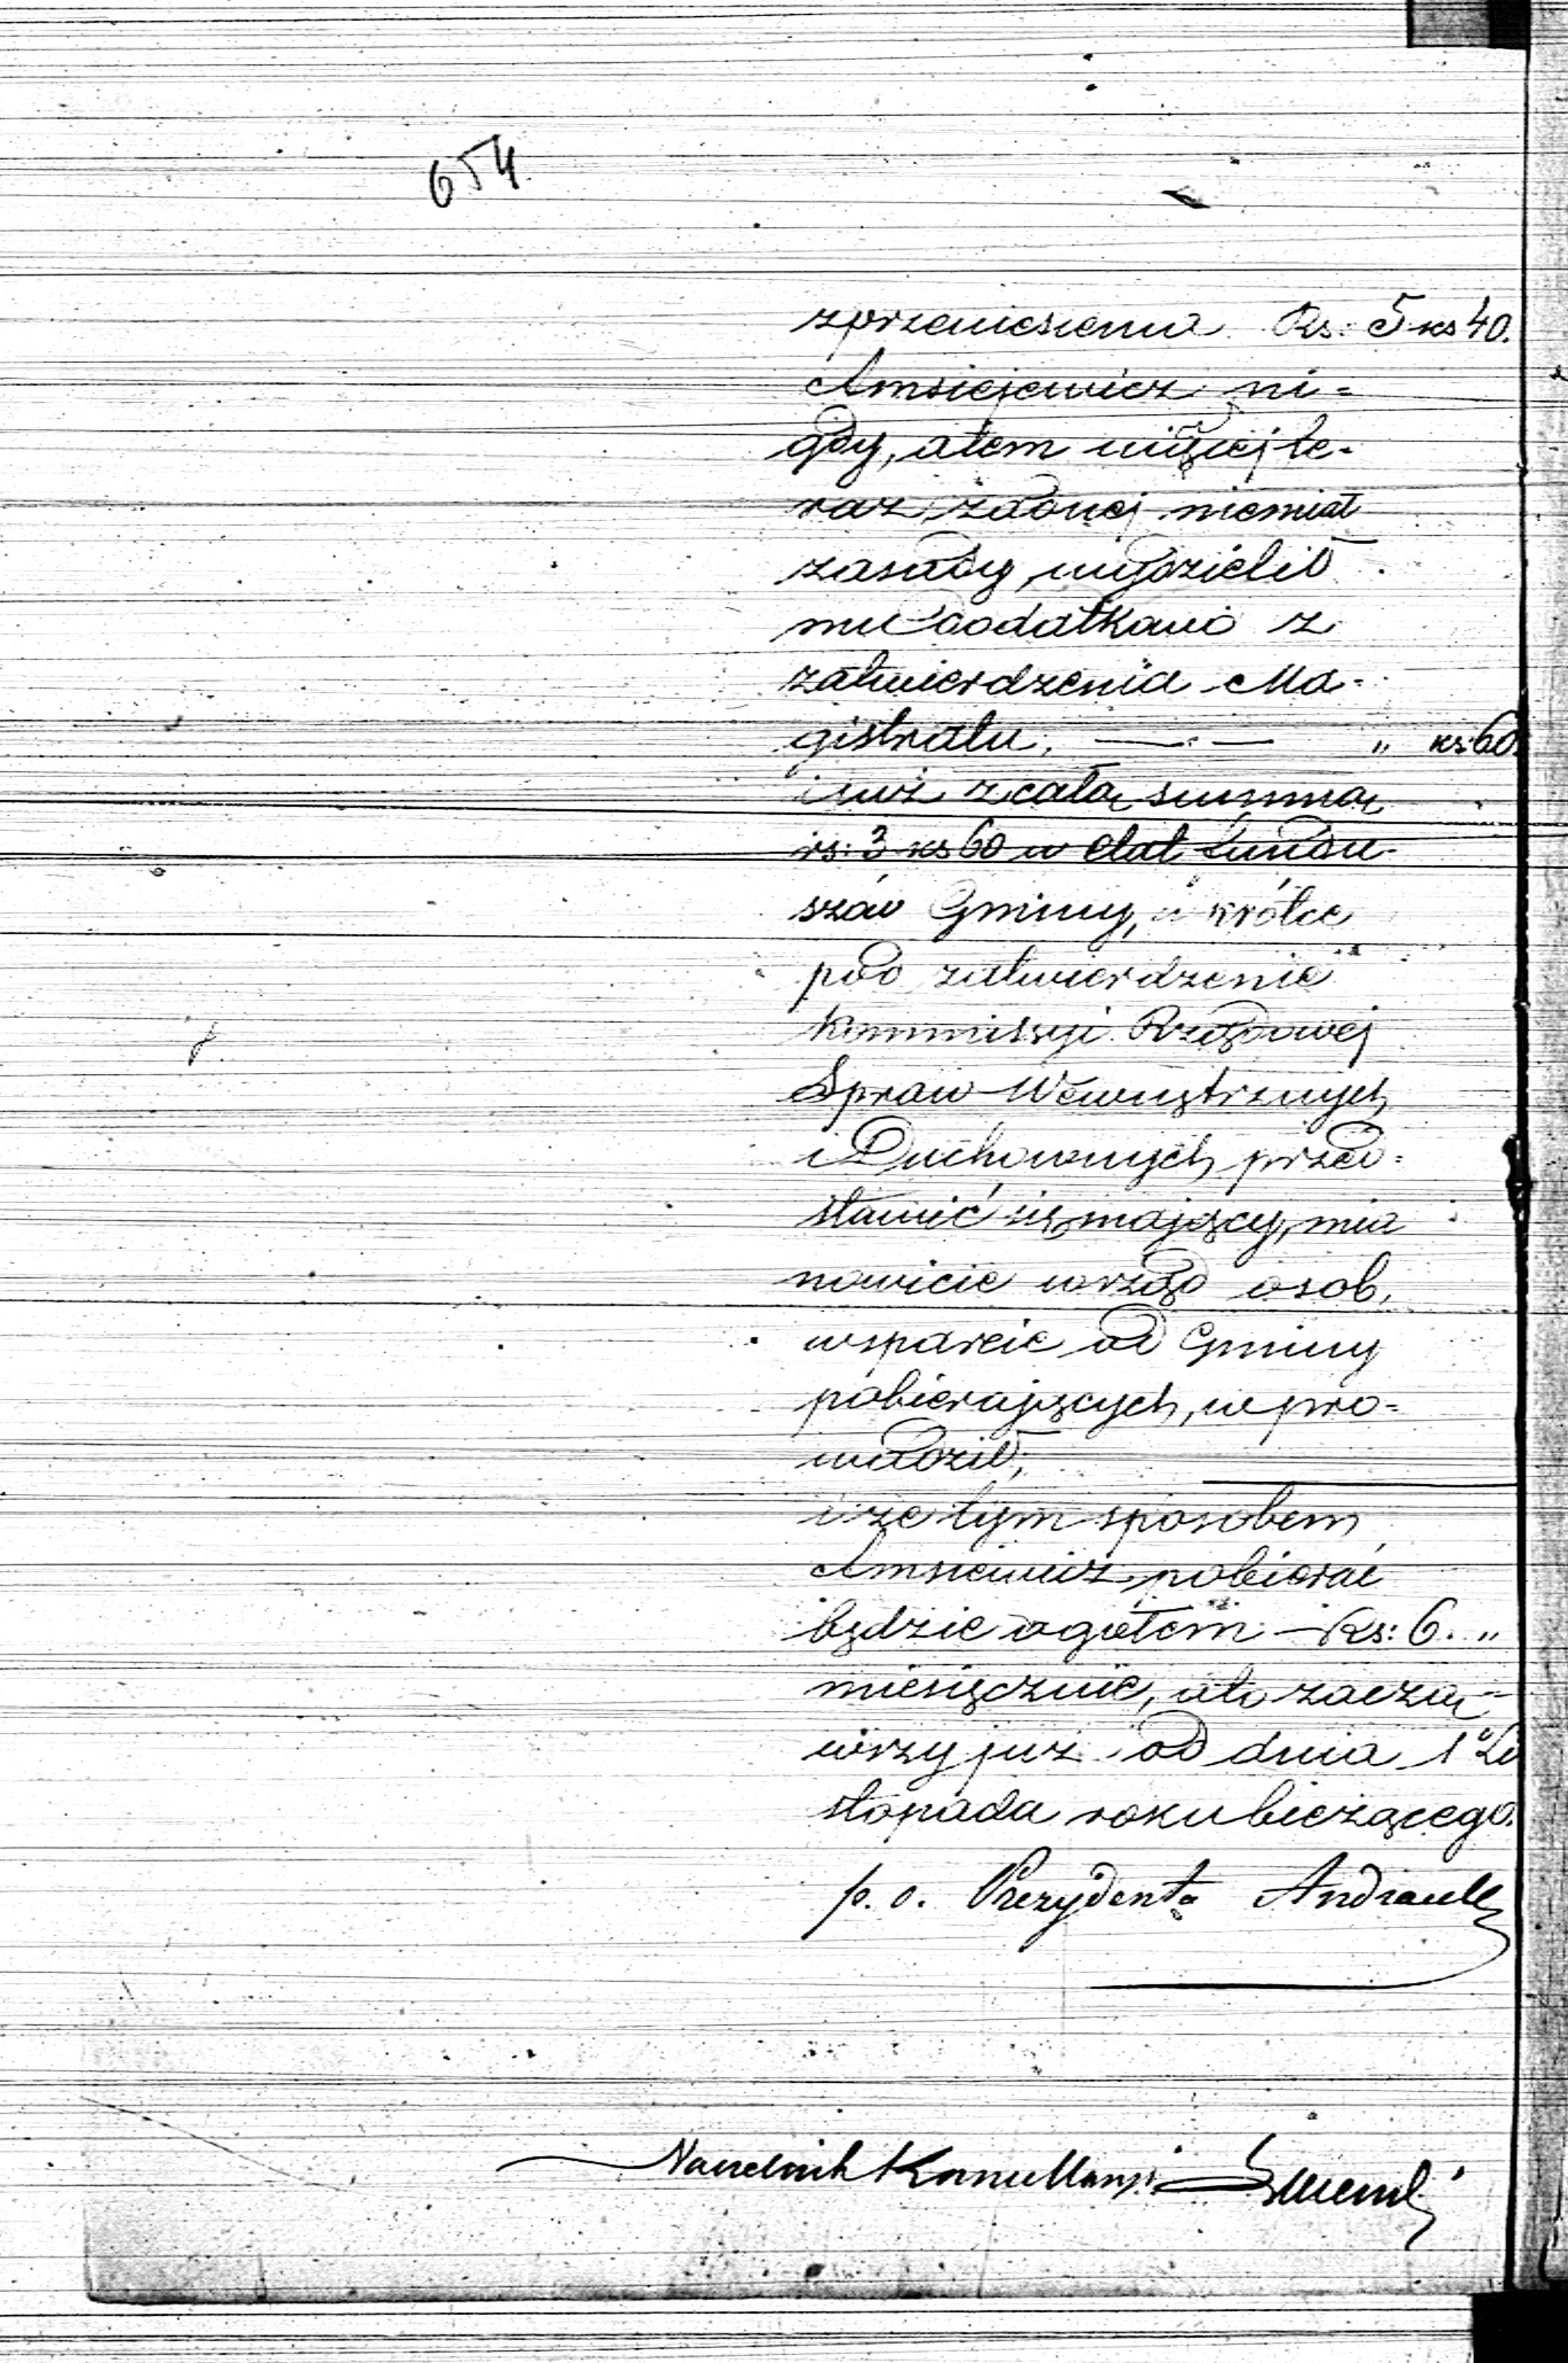 654.
z przeniesienia Rs: 5 ks 40.
Amsiejewicz ni=
gdy, atem więcej te-
raz żadnej niemiał
zasady, wydzielił
mu dodatkowo z
zatwierdzenia Ma-
gistratu, — „ ks: 60.
i już z całą summą
rs: 3 ks 60 w etat fundu-
szów Gminy, w krótce
pod zatwierdzenie
Kommissyi Rządowej
Spraw Wewnętrznych
i Duchownych przed=
stawić się mający, mia
nowicie w rząd osob,
wsparcie od Gminy
pobierających, wpro=
wadził;
i że tym sposobem
Amsiewicz pobierać
będzie ogółem Rs: 6. „
miesięcznie, a to zaczą-
wszy już od dnia 1º Li
stopada roku bieżącego.
p. o. Prezydenta Andrault
Naczelnik Kancellaryi